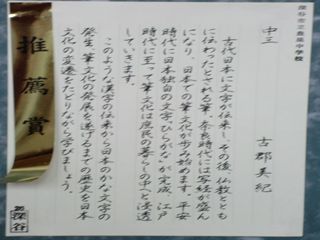 深谷市立豊里中学校
中三　古郡英紀
古代日本に文字が伝来し、その後仏教ととも
に伝わったとされる筆、奈良時代には写経が盛ん
になり、日本での筆文化が歩み始めます。平安
時代に日本独自の文字、ひらがなが完成、江戸
時代に至って筆文化は庶民の暮らしの中へと浸透
していきます。
このような漢字の伝来から日本のかな文字の
発生、筆文化の発展を遂げるまでの歴史を日本
文化の変遷をたどりながら学びましょう。
推薦賞
深谷